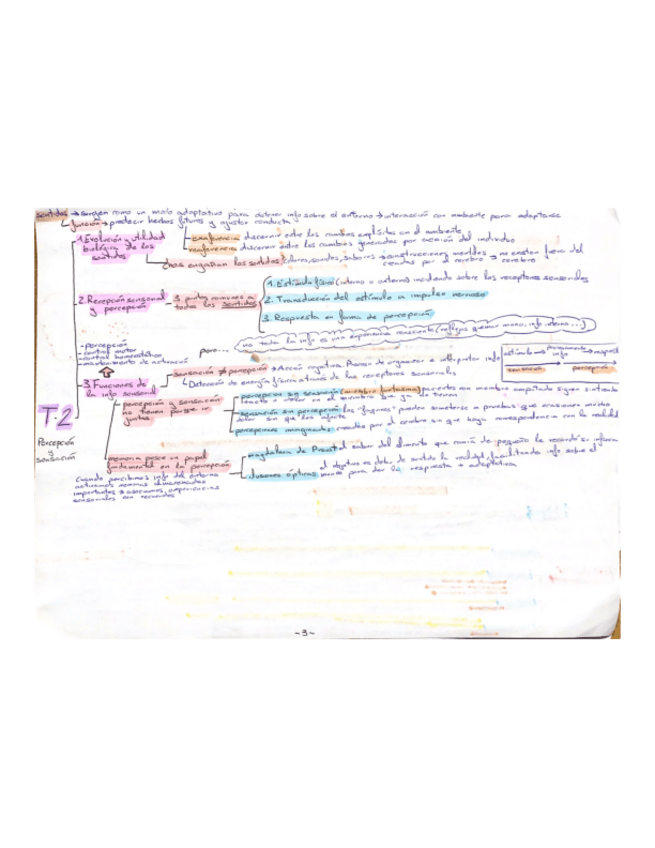 sentidos → surgen como un modo adaptativo para obtener info sobre el entorno → interacción con ambiente para adaptarse
función → predecir hechos futuros y ajustar conducta
1. Evolución y utilidad biológica de los sentidos
exaferencia discernir entre los cambios explícitos en el ambiente
reaferencia discernir entre los cambios generados por acción del individuo
cosas engañan los sentidos
colores, sonidos, sabores → construcciones mentales creadas por el cerebro = no existen fuera del cerebro
2. Recepción sensorial y percepción
3 puntos comunes a todos los sentidos
1. Estímulo físico (interno o externo) incidiendo sobre los receptores sensoriales
2. Transducción del estímulo a impulso nervioso
3. Respuesta en forma de percepción
pero...
no toda la info es una experiencia consciente (reflejos quemar mano, info interna...)
- percepción
- control motor
- control homeostático
- mantenimiento de activación
3. Funciones de la info sensorial
sensación ≠ percepción → Acción cognitiva. Proceso de organizar e interpretar info
Detección de energía física a través de los receptores sensoriales
estímulo → procesamiento info →
sensación percepción
percepción y sensación no tienen porque ir juntas
percepción sin sensación (miembro fantasma) pacientes con miembro amputado siguen sintiendo
dolor en el miembro que ya no tienen
sensación sin percepción los "fugines" pueden someterse a pruebas que ocasionen mucho
dolor sin que les afecte
percepciones imaginarias creadas por el cerebro sin que haya correspondencia con la realidad
memoria posee un papel fundamental en la percepción
magdalena de Proust el sabor del alimento que comía de pequeño le recordó su infancia
ilusiones ópticas el objetivo es dotar de sentido la realidad, facilitando info sobre el
mundo para dar la respuesta + adaptativa
Cuando percibimos info del entorno
activamos memorias almacenadas
importantes → asociamos experiencias
sensoriales con recuerdos
T.2
Percepción
y
sensación
-3-